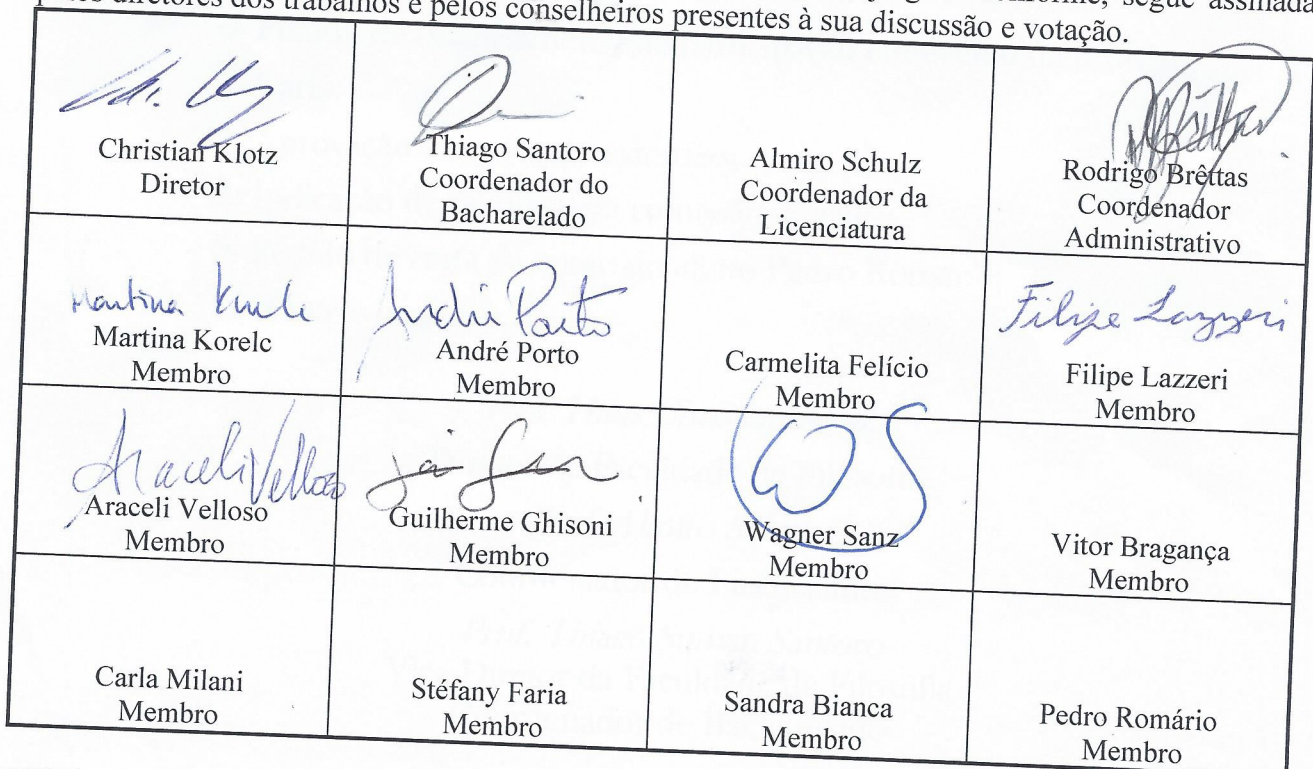 pelos diretores dos trabalhos e pelos conselheiros presentes à sua discussão e votação.
Christian Klotz
Diretor
Thiago Santoro
Coordenador do
Bacharelado
Almiro Schulz
Coordenador da
Licenciatura
Rodrigo Brêttas
Coordenador
Administrativo
Martina
Martina Korelc
Membro
André Porto
André Porto
Membro
Carmelita Felício
Membro
Filipe Lazzeri
Filipe Lazzeri
Membro
Araceli Velloso
Araceli Velloso
Membro
Guilherme Ghisoni
Membro
WS
Wagner Sanz
Membro
Vitor Bragança
Membro
Carla Milani
Membro
Stéfany Faria
Membro
Sandra Bianca
Membro
Pedro Romário
Membro